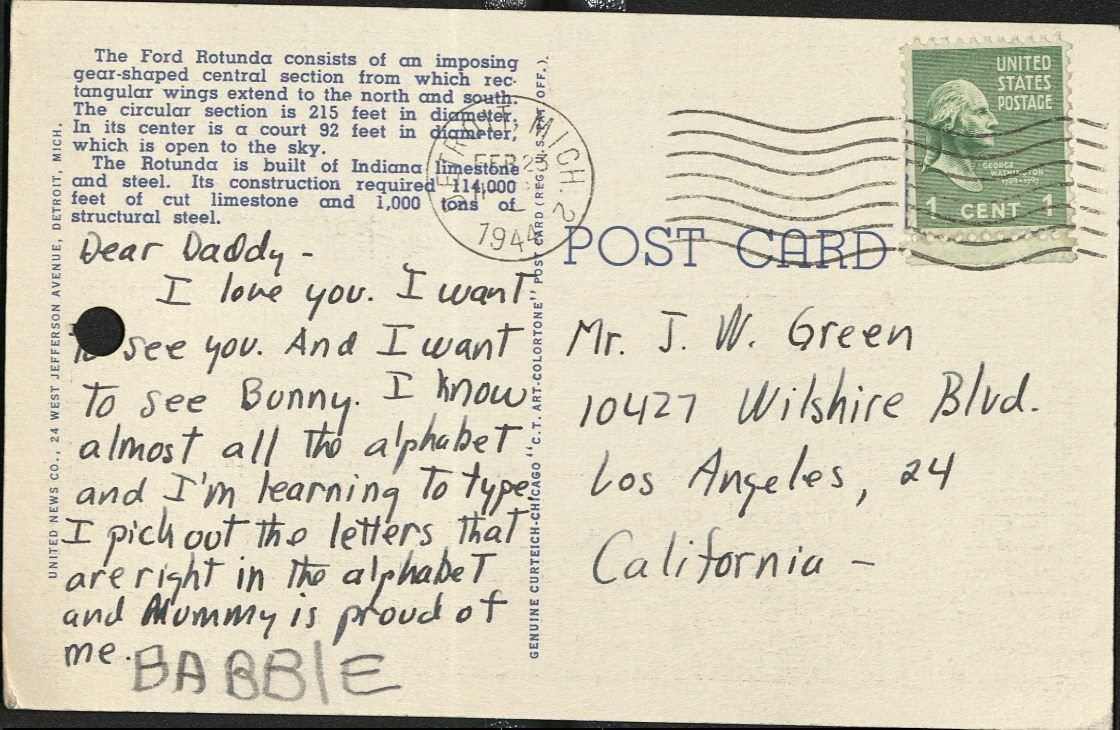 The Ford Rotunda consists of an imposing
gear-shaped central section from which rec-
tangular wings extend to the north and south.
The circular section is 215 feet in diameter.
In its center is a court 92 feet in diameter,
which is open to the sky.
The Rotunda is built of Indiana limestone
and steel. Its construction required 114,000
feet of cut limestone and 1,000 tons of
structural steel.
Dear Daddy -
I love you. I want
to see you. And I want
to see Bunny. I know
almost all the alphabet
and I'm learning to type.
I pick out the letters that
are right in the alphabet
and Mummy is proud of
me.
BABBIE
UNITED NEWS CO., 24 WEST JEFFERSON AVENUE, DETROIT, MICH.
GENUINE CURTEICH-CHICAGO "C.T. ART-COLORTONE" POST CARD (REG. U.S. PAT. OFF.)
DETROIT, MICH. 2
FEB 23
1944
UNITED
STATES
POSTAGE
GEORGE
WASHINGTON
1789-1797
1 CENT 1
POST CARD
Mr. J. W. Green
10427 Wilshire Blvd.
Los Angeles, 24
California -